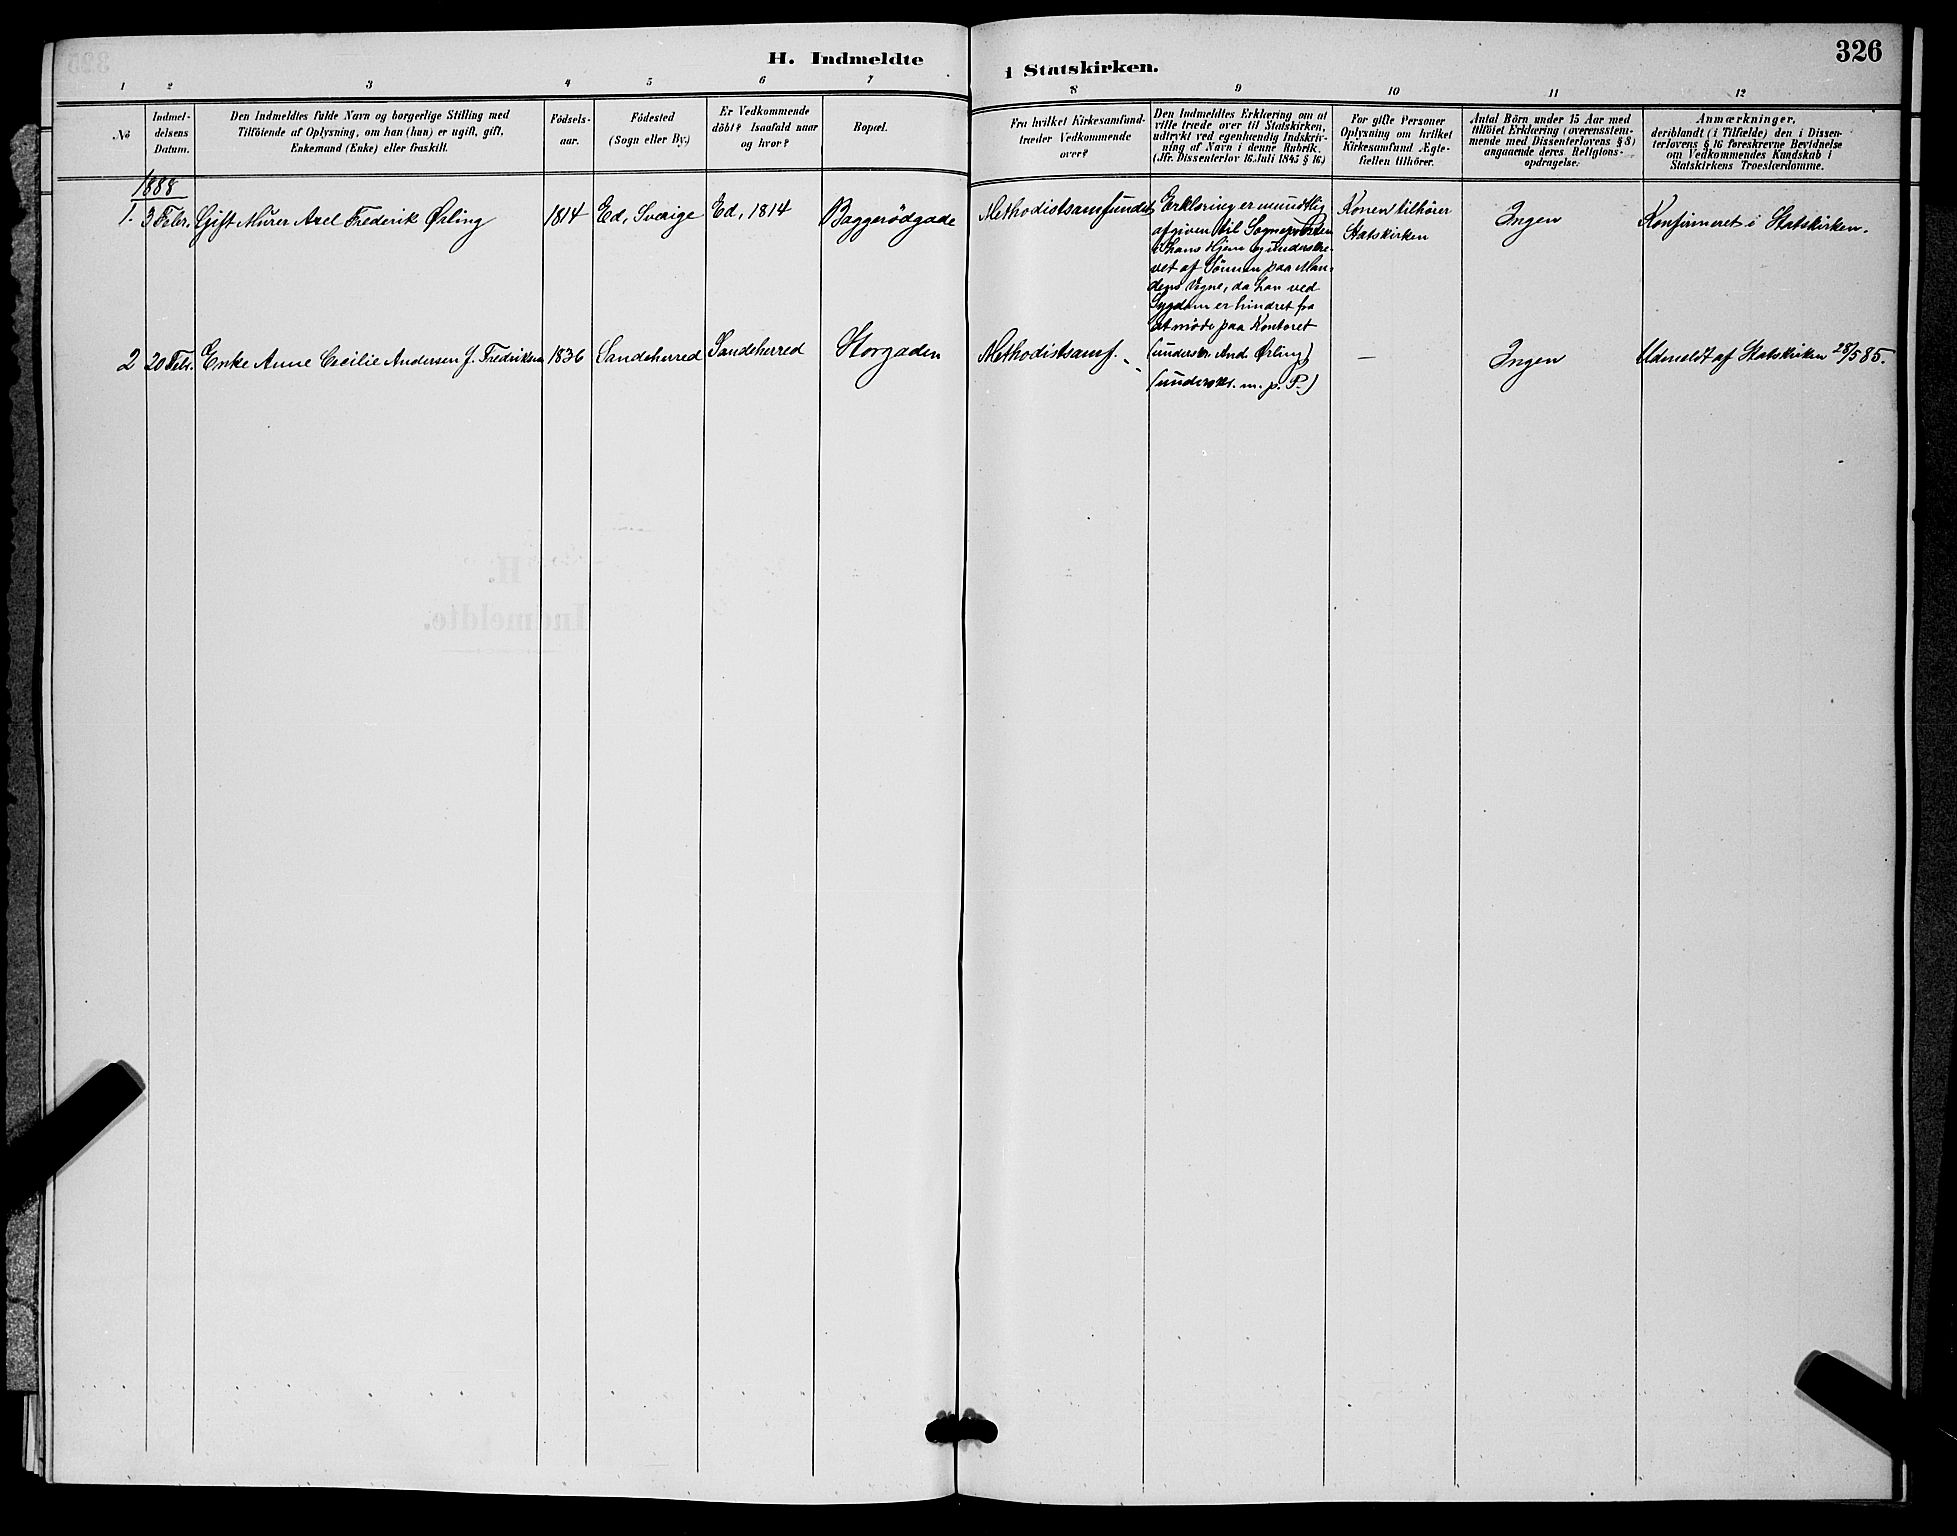 H. Indmeldte
i Statskirken.
326
1 2 3 4 5 6 7 8 9 10 11 12
No
Indmel-
delsens
Datum.
Den Indmeldtes fulde Navn og borgerlige Stilling med
Tilföiende af Oplysning, om han (hun) er ugift, gift,
Enkemand (Enke) eller fraskilt.
Födsels-
aar.
Födested
(Sogn eller By.)
Er Vedkommende
döbt? Isaafald naar
og hvor?
Bopæl.
Fra hvilket Kirkesamfund-
træder Vedkommende
over?
Den Indmeldtes Erklæring om at
ville træde over til Statskirken,
udtrykt ved egenhændig Indskriv-
ning af Navn i denne Rubrik.
(Jfr. Dissenterlov 16. Juli 1845 § 16.)
For gifte Personer
Oplysning om hvilket
Kirkesamfund Ægte-
fællen tilhörer.
Antal Börn under 15 Aar med
tilföiet Erklæring (overensstem-
mende med Dissenterlovens § 8)
angaaende deres Religions-
opdragelse.
Anmærkninger,
deriblandt (i Tilfælde) den i Dissen-
terlovens § 16 foreskrevne Bevidnelse
om Vedkommendes Kundskab i
Statskirkens Troeslærdomme.
1888
1.
3 Febr.
Gift Murer Axel Frederik Ørling
1814
Ed, Sverige
Ed, 1814
Baggerødgade
Methodistsamfundet
Erklæring er mundtlig
afgiven til Sognepræsten
i hans Hjem og underskre-
vet af Sønnen paa Man-
dens Vegne, da han ved
Sygdom er hindret fra
at møde paa Kontoret
(underskr. And. Ørling)
Konen tilhører
Statskirken
Ingen
Konfirmeret i Statskirken.
2
20 Febr.
Enke Anne Cecilie Andersen f. Fredriksen
1836
Sandeherred
Sandeherred
Storgaden
Methodistsamf.
(underskr. m. p. P.)
—
Ingen
Udmeldt af Statskirken 28/5 85.